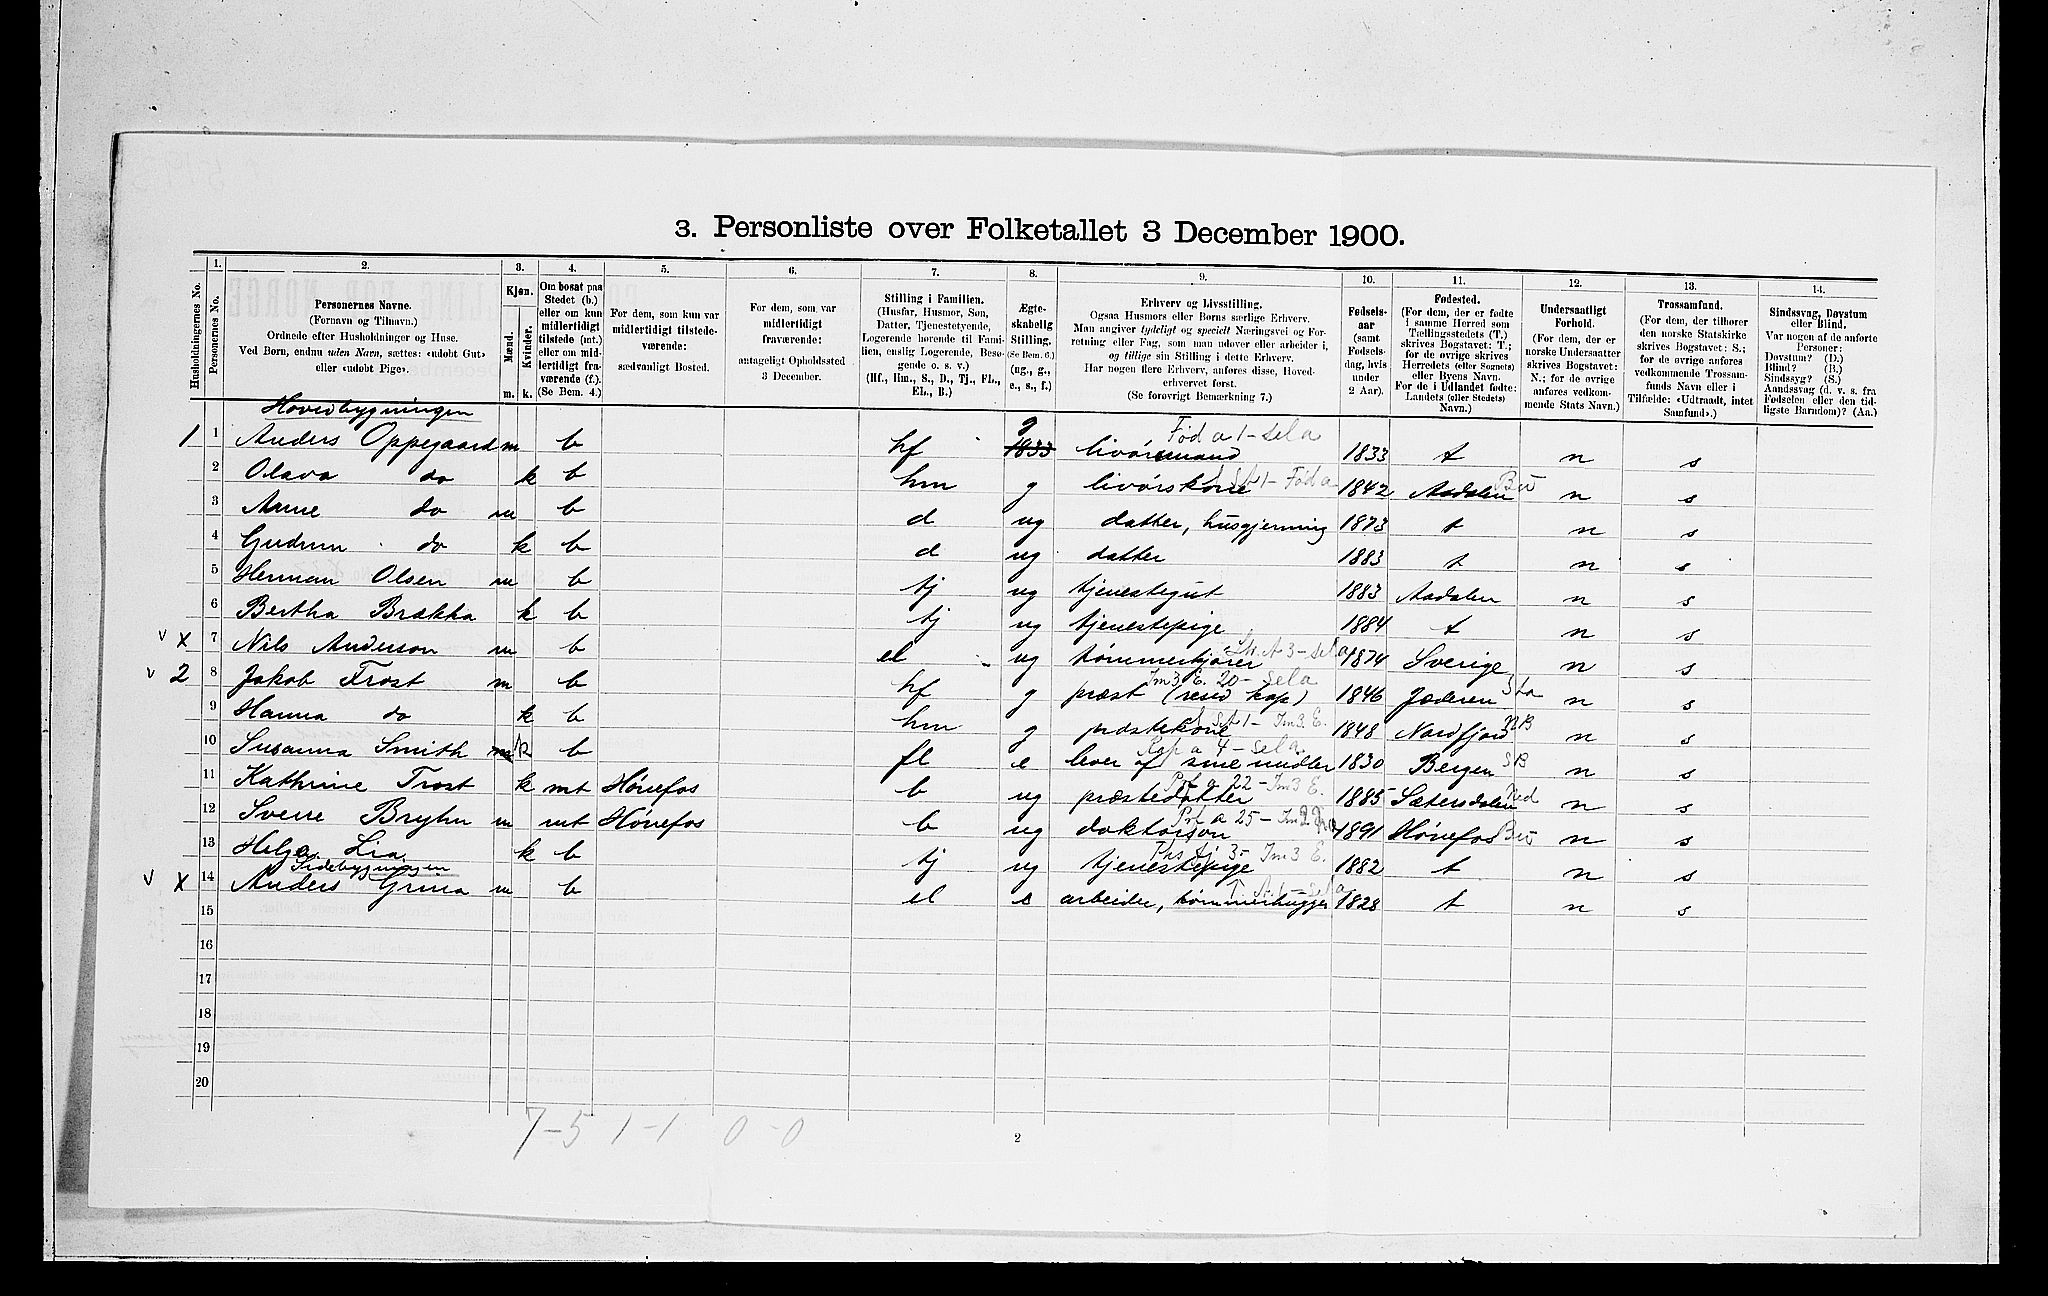 3. Personliste over Folketallet 3 December 1900.
1. 2. 3. 4. 5. 6. 7. 8. 9. 10. 11. 12. 13. 14.
Husholdningernes No.
Personernes No.
Personernes Navne.
(Fornavn og Tilnavn.)
Ordnede efter Husholdninger og Huse.
Ved Børn, endnu uden Navn, sættes: «udøbt Gut»
eller «udøbt Pige».
Kjøn.
Mænd.
Kvinder.
m. k.
Om bosat paa
Stedet (b.)
eller om kun
midlertidigt
tilstede (mt.)
eller om mid-
lertidigt fra-
værende (f.).
(Se Bem. 4.)
For dem, som kun var
midlertidigt tilstede-
værende:
sædvanligt Bosted.
For dem, som var
midlertidigt
fraværende:
antageligt Opholdssted
3 December.
Stilling i Familien.
(Husfar, Husmor, Søn,
Datter, Tjenestetyende,
Logerende hørende til Fami-
lien, enslig Logerende, Besø-
gende o. s. v.)
(Hf., Hm., S., D., Tj., FL.,
EL., B.)
Ægte-
skabelig
Stilling.
(Se Bem. 6.)
(ug., g.,
e., s., f.)
Erhverv og Livsstilling.
Ogsaa Husmors eller Børns særlige Erhverv.
Man angiver tydeligt og specielt Næringsvei og For-
retning eller Fag, som man udøver eller arbeider i,
og tillige sin Stilling i dette Erhverv.
Har nogen flere Erhverv, anføres disse, Hoved-
erhvervet først.
(Se forøvrigt Bemærkning 7.)
Fødsels-
aar
(samt
Fødsels-
dag, hvis
under
2 Aar).
Fødested.
(For dem, der er fødte
i samme Herred som
Tællingsstedets (T.)
skrives Bogstavet: T.;
for de øvrige skrives
Herredets (eller Sognets)
eller Byens Navn.
For de i Udlandet fødte:
Landets (eller Stedets)
Navn.)
Undersaatligt
Forhold.
(For dem, der er
norske Undersaatter
skrives Bogstavet:
N.; for de øvrige
anføres vedkom-
mende Stats Navn.)
Trossamfund.
(For dem, der tilhører
den norske Statskirke
skrives Bogstavet: S.;
for de øvrige anføres
vedkommende Trossam-
funds Navn eller i
Tilfælde: «Udtraadt, intet
Samfund».)
Sindssvag, Døvstum
eller Blind.
Var nogen af de anførte
Personer:
Døvstum? (D.)
Blind? (B.)
Sindssyg? (S.)
Aandssvag (d. v. s. fra
Fødselen eller den tid-
ligste Barndom)? (Aa.)
Hovedbygningen
1 1 Anders Oppegaard m b hf 1833 g livørsmand Fød a 1 - sel a 1833 t n s
2 Olava do k b hm g livørskone S St 1 - Fød a 1842 Aadalen Bu n s
3 Anne do m b d ug datter, husgjerning 1873 t n s
4 Gudrun do k b d ug datter 1883 t n s
5 Herman Olsen m b tj ug tjenestegut 1883 Aadalen n s
6 Bertha Brækka k b tj ug tjenestepige 1884 t n s
v x 7 Nils Anderson m b el ug tømmerkjører A 3 - sel a 1874 Sverige n s
v 2 8 Jakob Frost m b hf g præst (resid kap) Im 3 E. 20 - sel a 1846 Jæderen Sta n s
9 Hanna do k b hm g præstekone S St 1 - Im 3. E. 1848 Nordfjord NB n s
10 Susanna Smith m k b fl e lever af sine midler Kap a 4 - sel a. 1830 Bergen SB n s
11 Kathrine Frost k mt Hønefos b ug præstedatter Prf a 22 - Im 3 E. 1885 Sætersdalen Ned n s
12 Sverre Bryhn m mt Hønefos b ug doktorsøn Prf a 25 - 1891 Hønefos Bu n s
13 Helga Lia k b tj ug tjenestepige Phs tj 3 - Im 3 E. 1882 t n s
Sidebygningen
v x 14 Anders Gruua m b el e arbeider, tømmerhugger T. A. 1 - sel a 1828 t n s
15
16
17
18
19
20
7-5 1-1 0-0
2